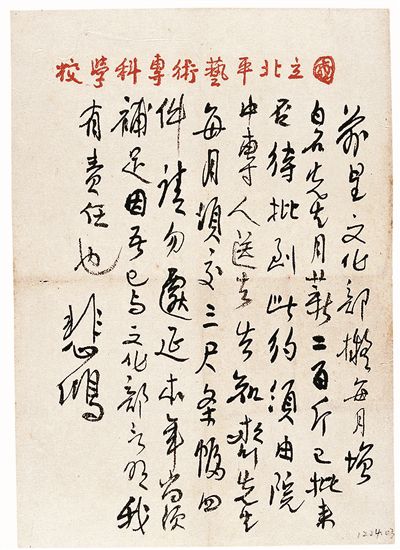 國立北平藝術專科學校
前呈文化部擬每月增
白石先生月薪二百斤已批來
否待批到此約須由院
中專人送去告知齊先生
每月須交三尺条幅四
件請勿遷延本年尚須
補足因吾已与文化部言明我
有責任也
悲鴻